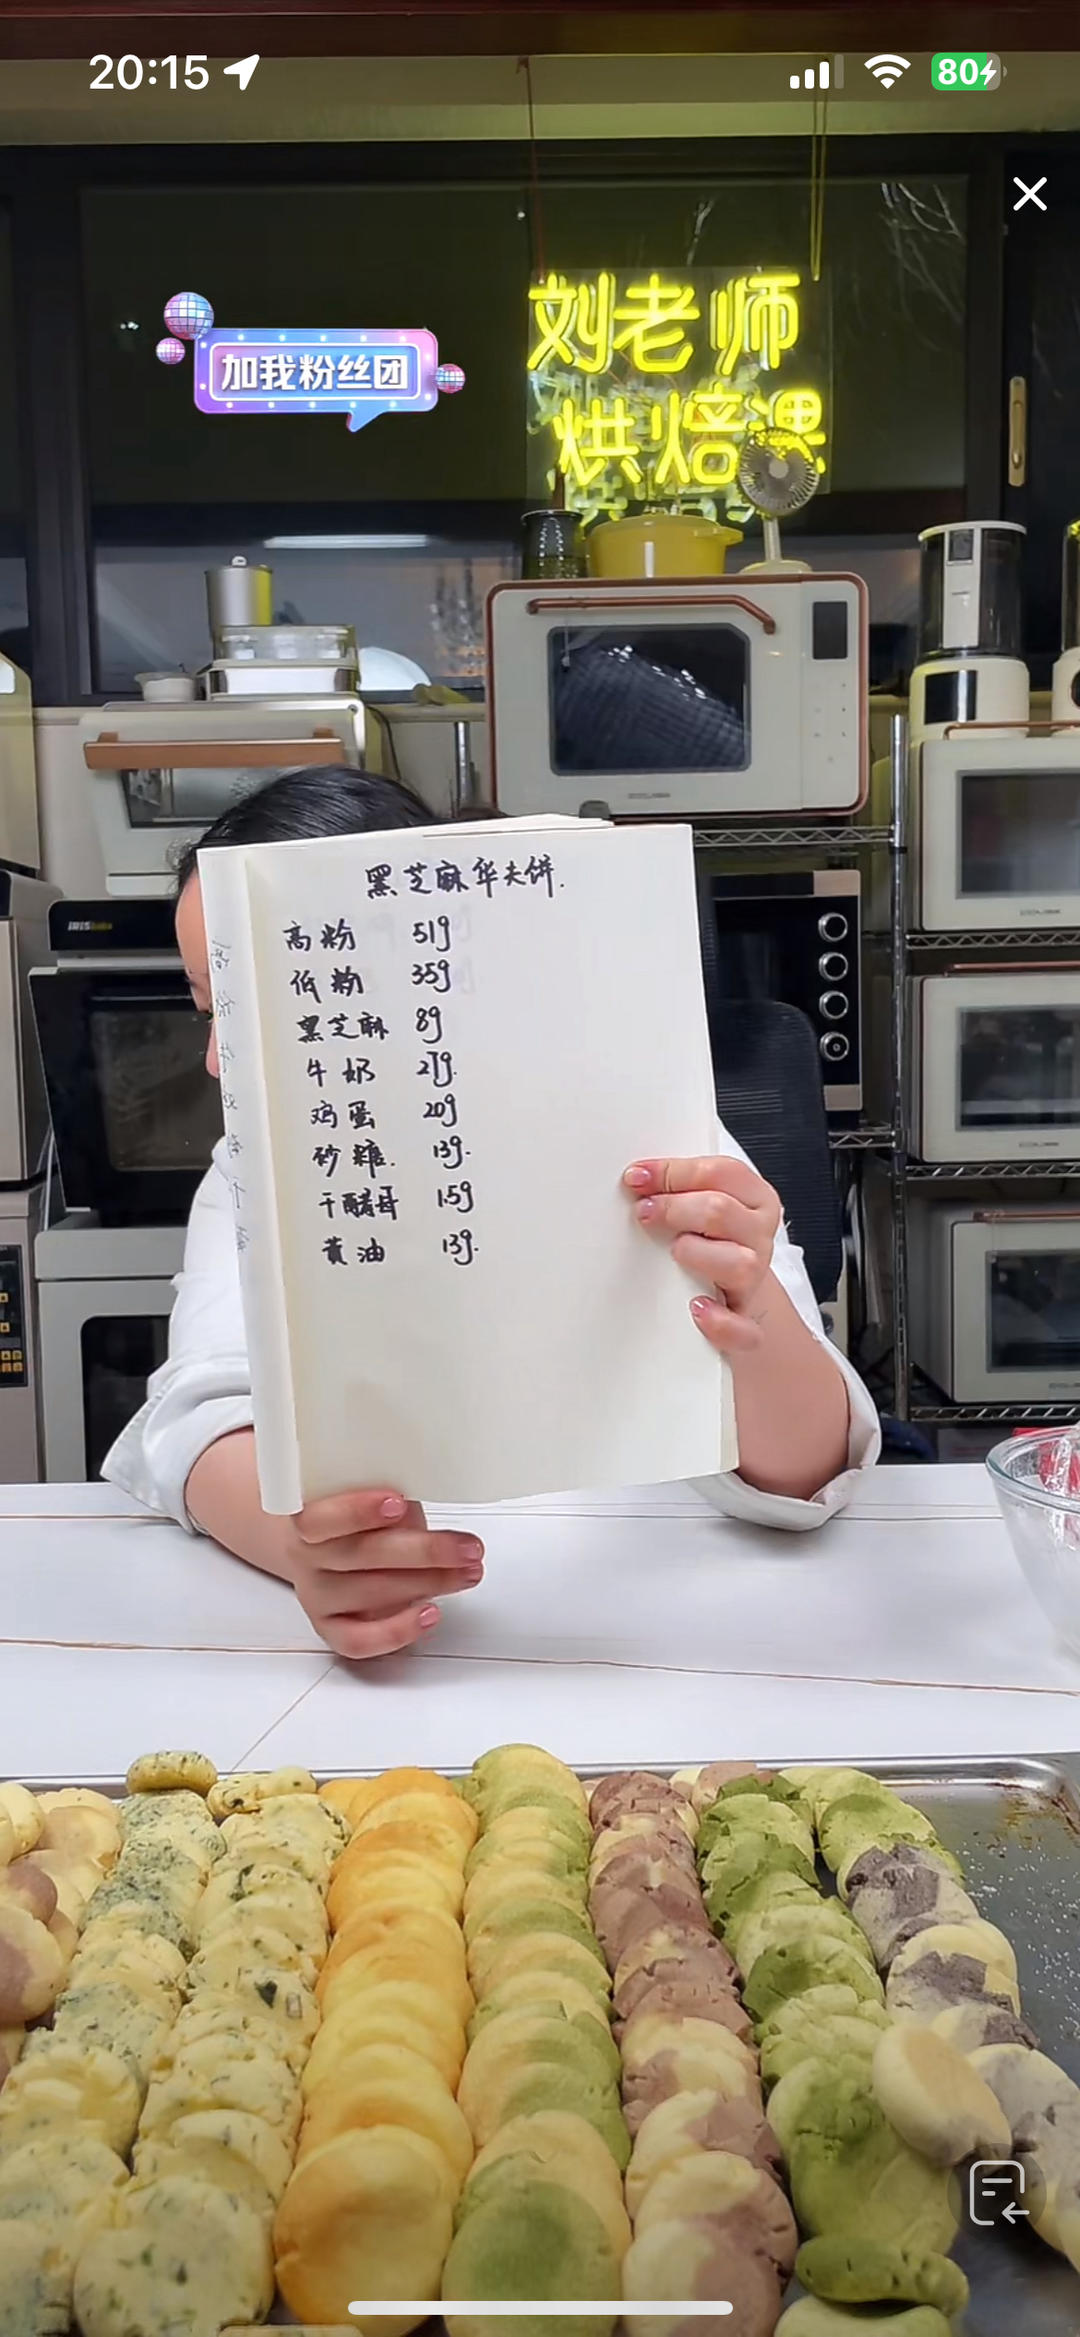 20:15
80
刘老师
加我粉丝团
烘焙课
黑芝麻华夫饼.
高粉 51g
低粉 35g
黑芝麻 8g
牛奶 27g.
鸡蛋 20g
砂糖. 13g.
干酵母 1.5g
黄油 13g.